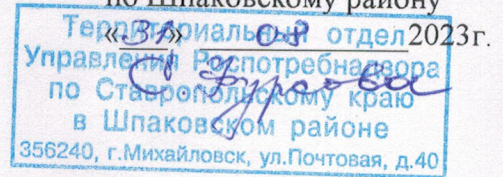 по Шпаковскому району
«31» 08 2023г.
Территориальный отдел
Управления Роспотребнадзора
по Ставропольскому краю
в Шпаковском районе
356240, г.Михайловск, ул.Почтовая, д.40